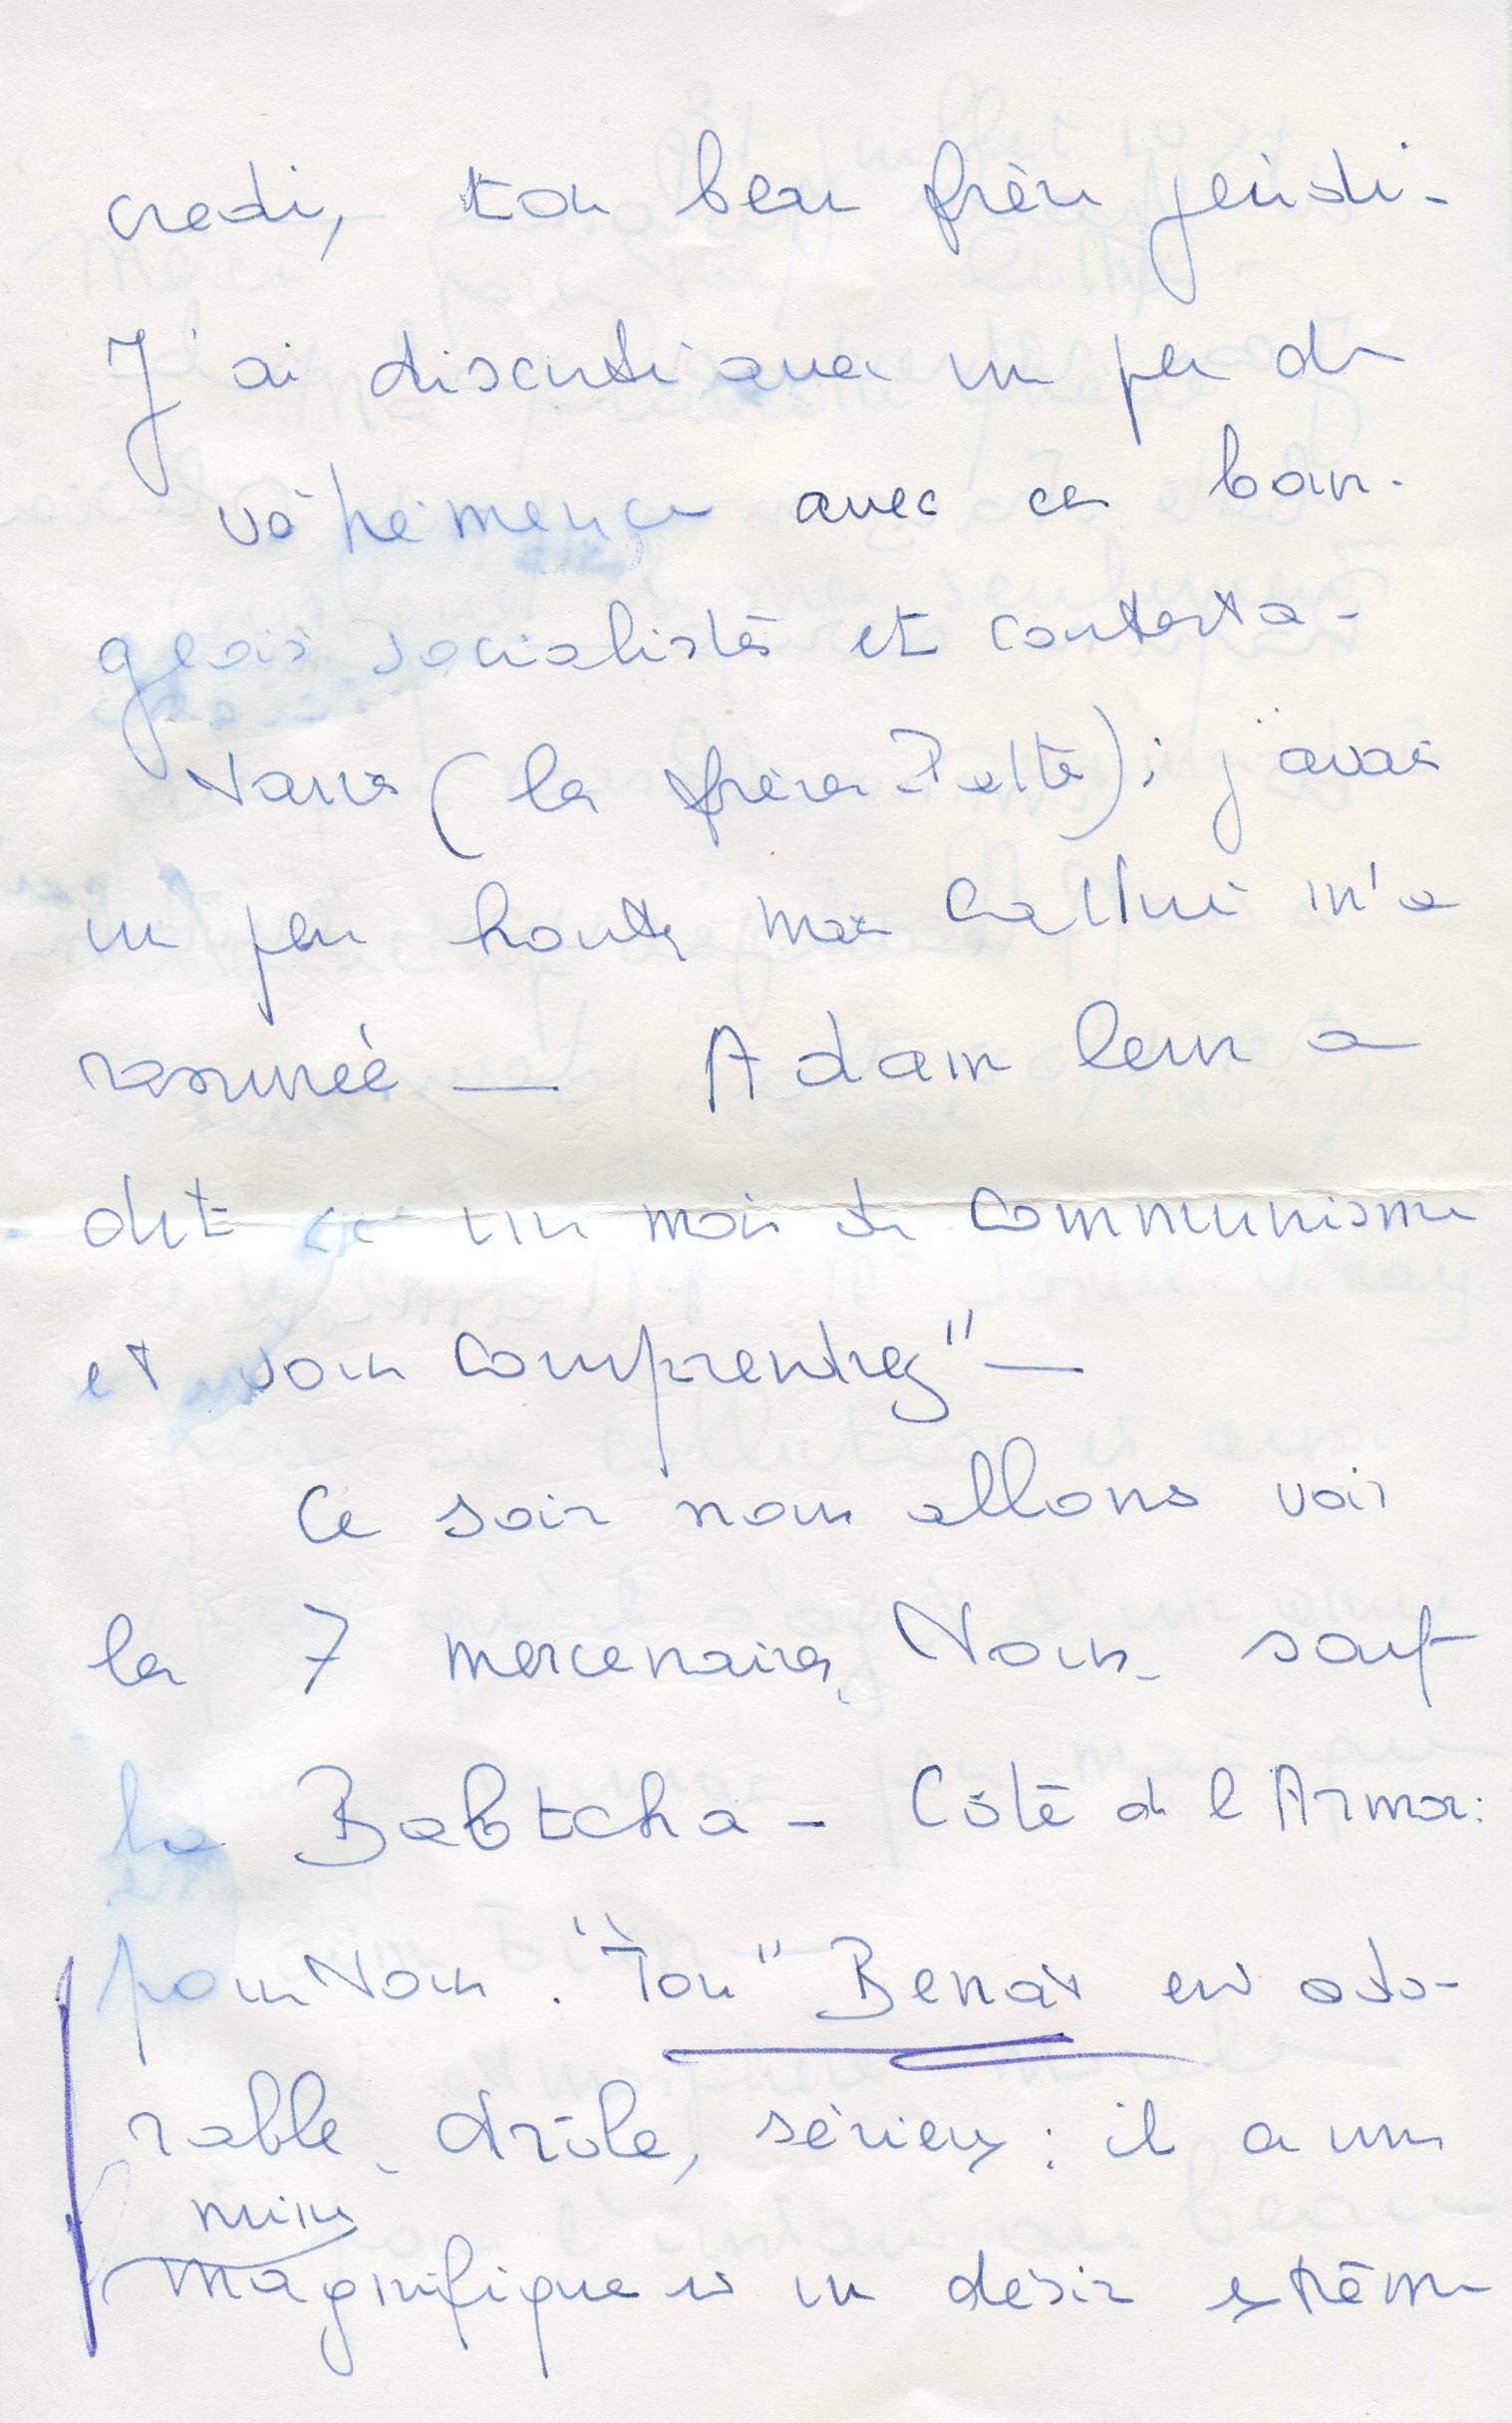 credi, ton beau frère jeudi -
J'ai discuté avec un peu de
véhémence avec ces bour-
geois socialistes et contesta-
taires (les frères            ); j'avais
un peu honte mais            m'a
rassurée — Adam leur a
dit " un mois de communisme
et vous comprendrez" —
Ce soir nous allons voir
les 7 mercenaires, Nous - sauf
la Babtcha - Côté de l'Armor:
pour Nous. "Ton" Benoît est ado-
rable, drôle, sérieux : il a une
mine
magnifique et un désir extrême